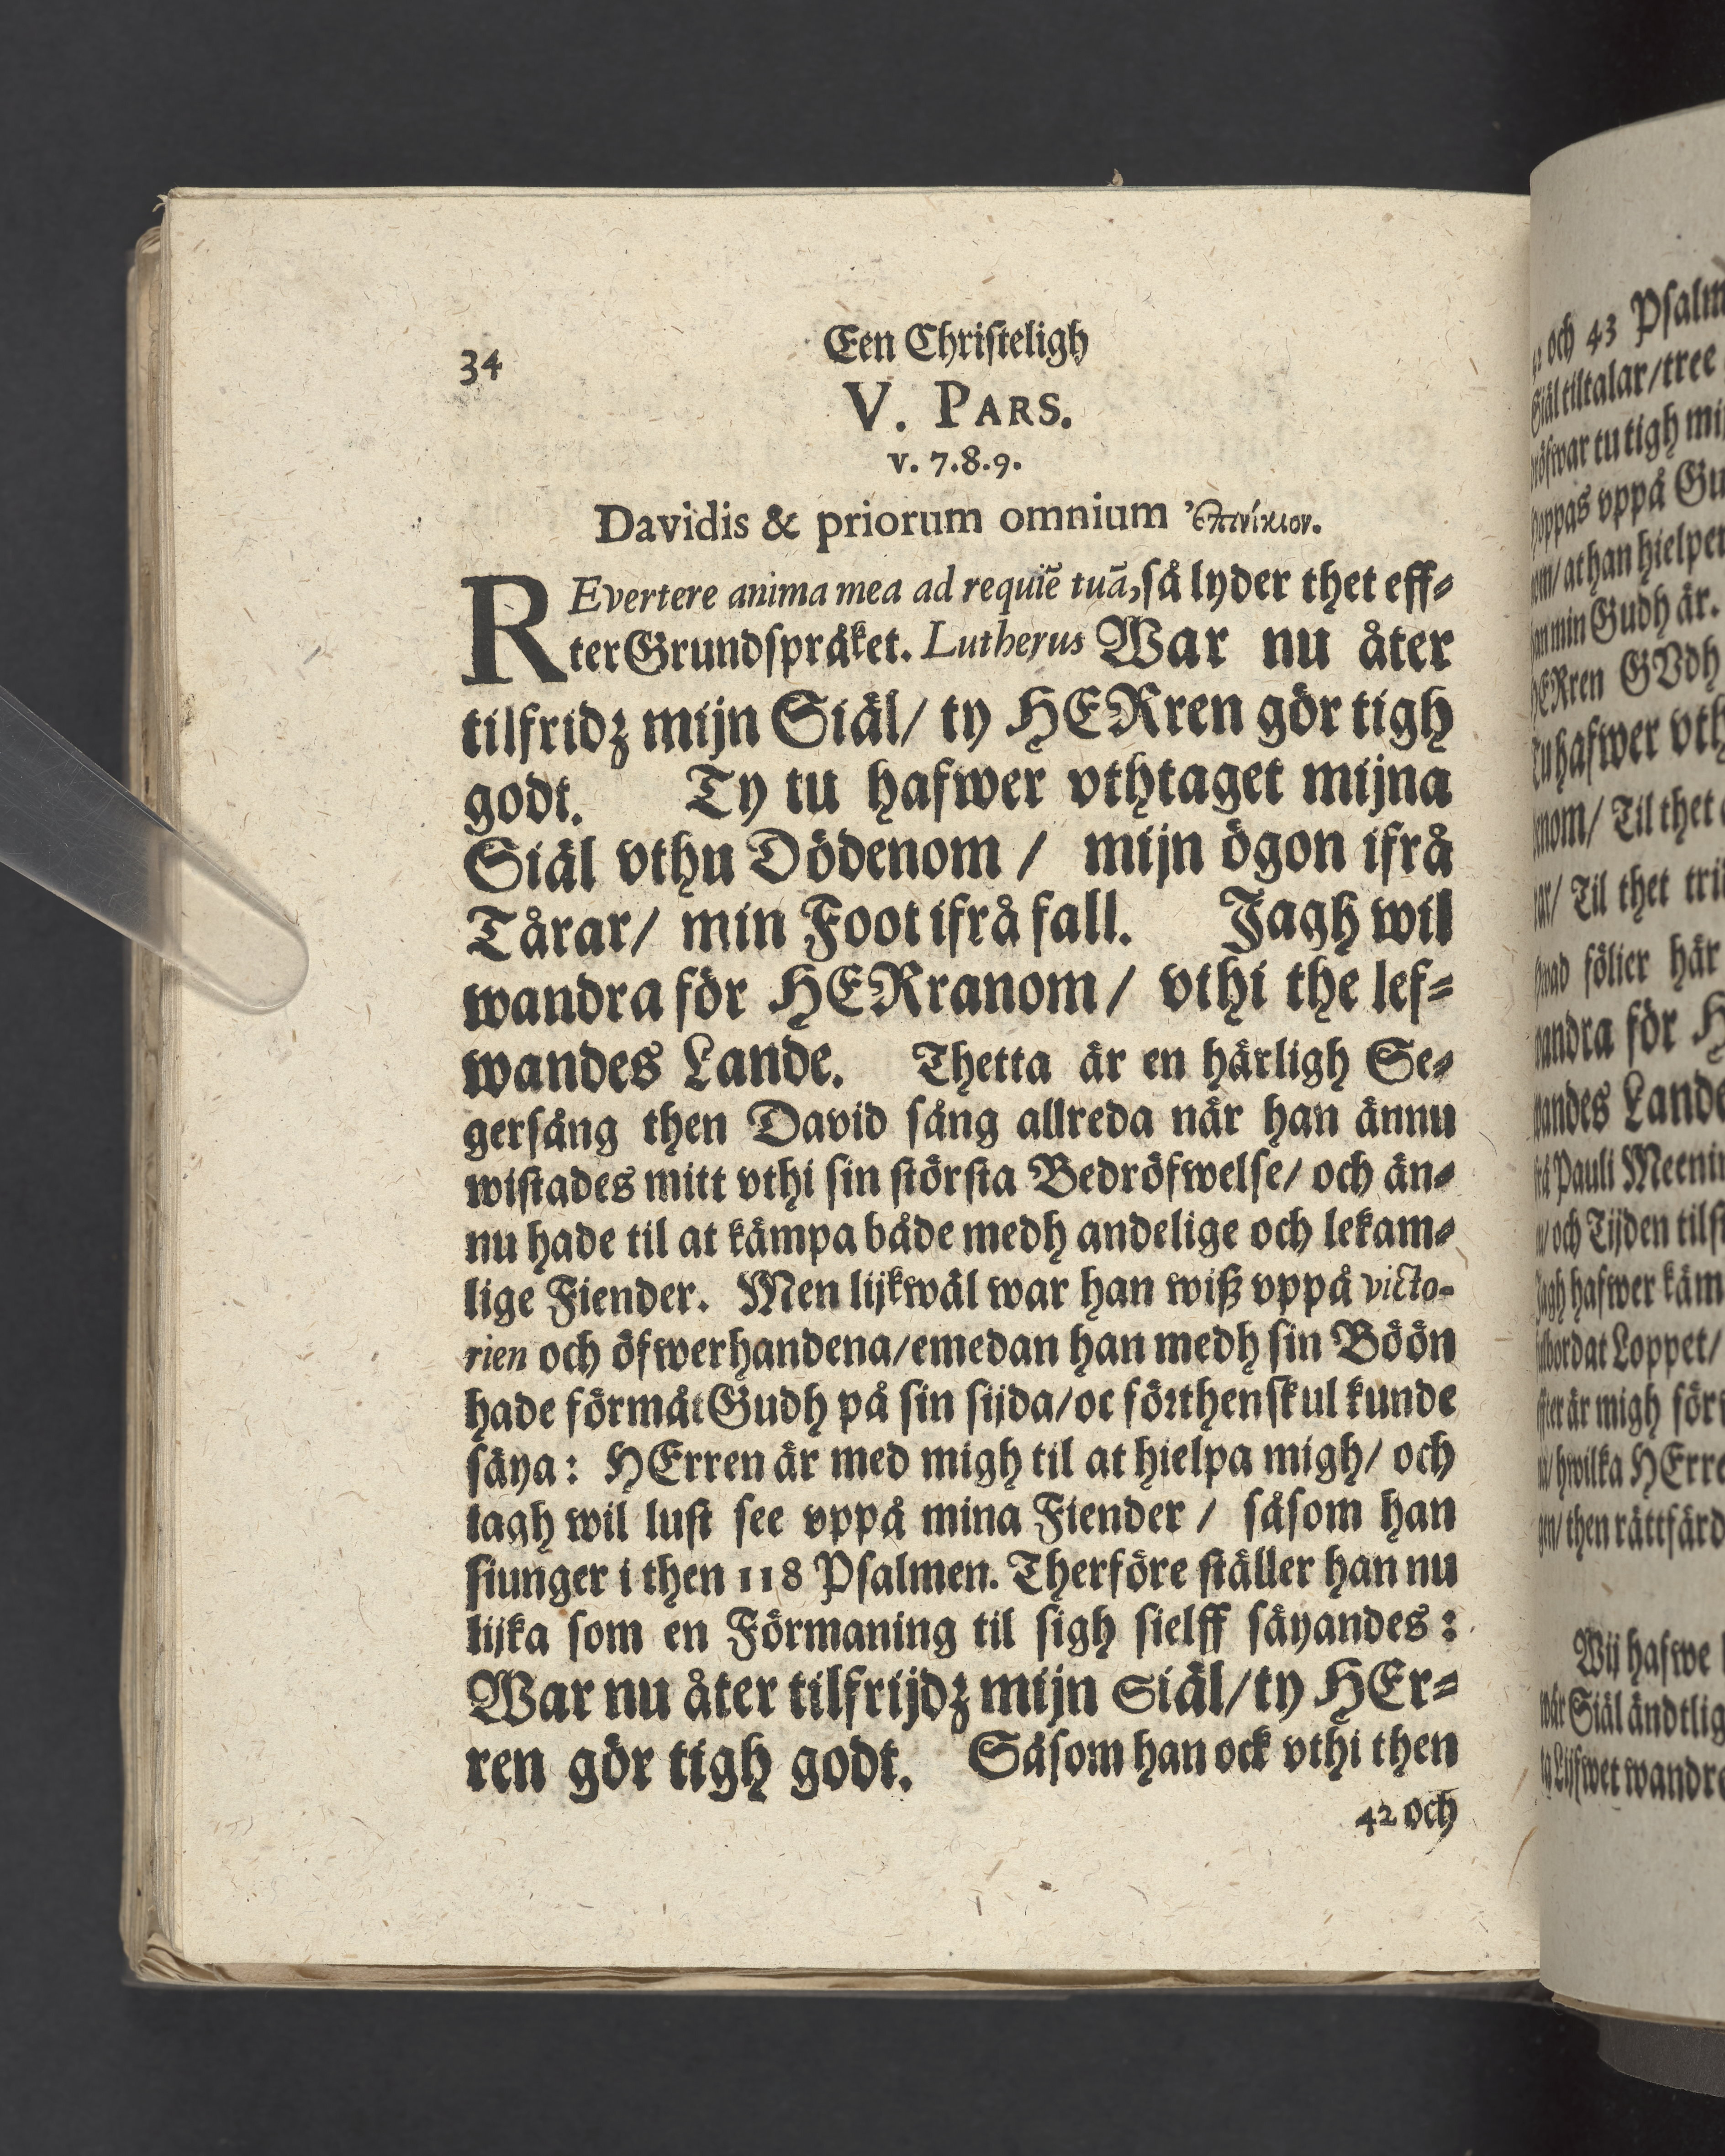 34
Een Christeligh
V. PARS.
v. 7.8.9.
Davidis & priorum omnium ἐπινίκιον.
REvertere anima mea ad requiē tuā, så lyder thet eff-
ter Grundspråket. Lutherus War nu åter
tilfridz mijn Siäl/ ty HERren gör tigh
godt. Ty tu hafwer vthtaget mijna
Siäl vthu Dödenom / mijn ögon ifrå
Tårar/ min Foot ifrå fall. Jagh wil
wandra för HERranom / vthi the lef-
wandes Lande. Thetta är en härligh Se-
gersång then David sång allreda när han ännu
wistades mitt vthi sin största Bedröfwelse/ och än-
nu hade til at kämpa både medh andelige och lekam-
lige Fiender. Men lijkwäl war han wiß vppå victo-
rien och öfwerhandena/emedan han medh sin Böön
hade förmåt Gudh på sin sijda/oc förthenskul kunde
säya: HErren är med migh til at hielpa migh/ och
iagh wil lust see vppå mina Fiender / såsom han
siunger i then 118 Psalmen. Therföre ställer han nu
lijka som en Förmaning til sigh sielff säyandes:
War nu åter tilfrijdz mijn Siäl/ty HEr-
ren gör tigh godt. Såsom han ock vthi then
42 och
och 43 Psalm
Siäl tiltalar/tree
war tu tigh
hoppas vppå
/at han hielper
min Gudh är.
HERren GVdh
Tu hafwer
/ Til thet
/ Til thet
fölier här
wandra för
wandes Lande
Pauli
och Tijden
Jagh hafwer
Loppet/
är migh
/hwilka
/then
Wij hafwe
wår Siäl
Lijfwet